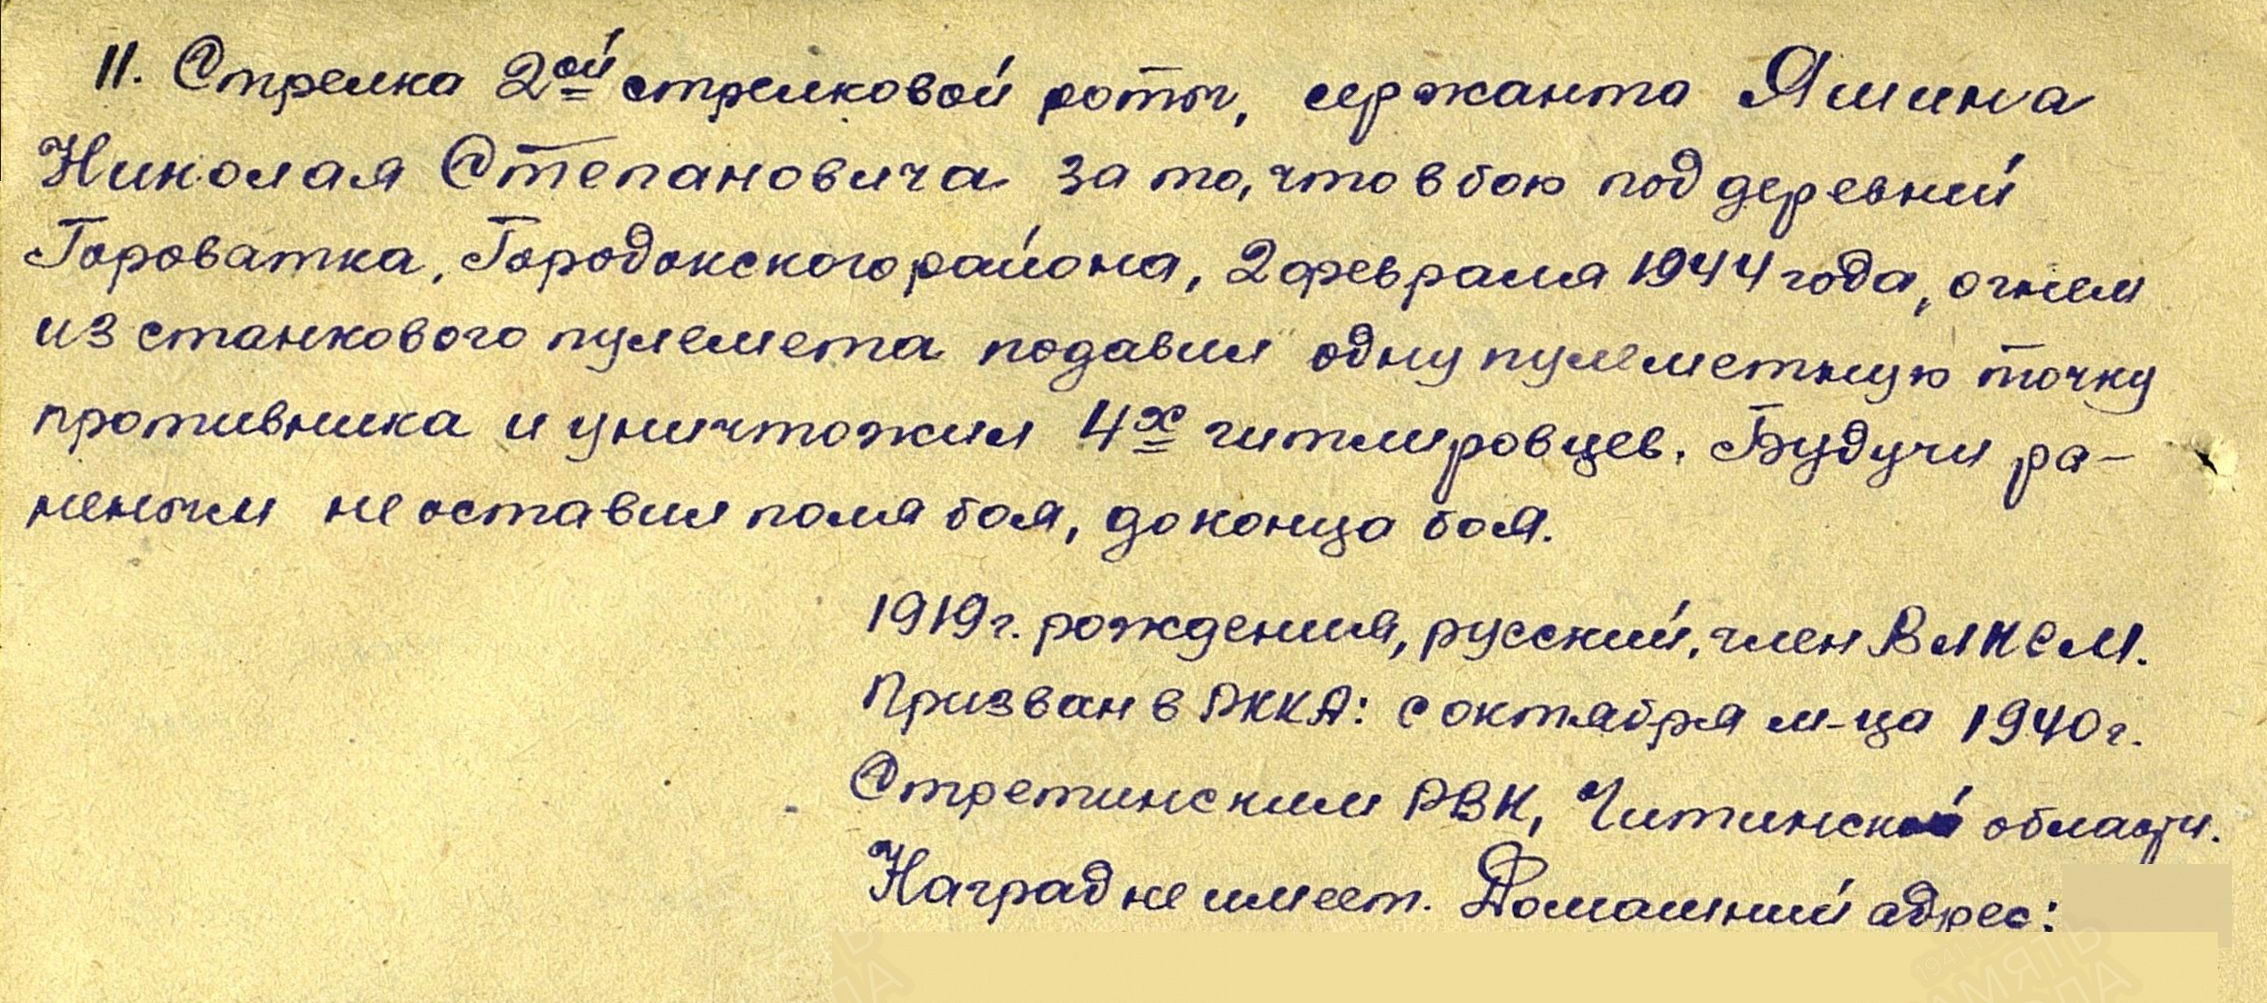 11. Стрелка 2ой стрелковой роты, сержанта Яшина
Николая Степановича за то, что в бою под деревней
Гороватка, Городокского района, 2 февраля 1944 года, огнем
из станкового пулемета подавил одну пулеметную точку
противника и уничтожил 4х гитлеровцев. Будучи ра-
неным не оставил поля боя, до конца боя.
1919 г. рождения, русский, член ВЛКСМ.
Призван в РККА: с октября м-ца 1940 г.
Стретинским РВК, Читинской области.
Наград не имеет. Домашний адрес: